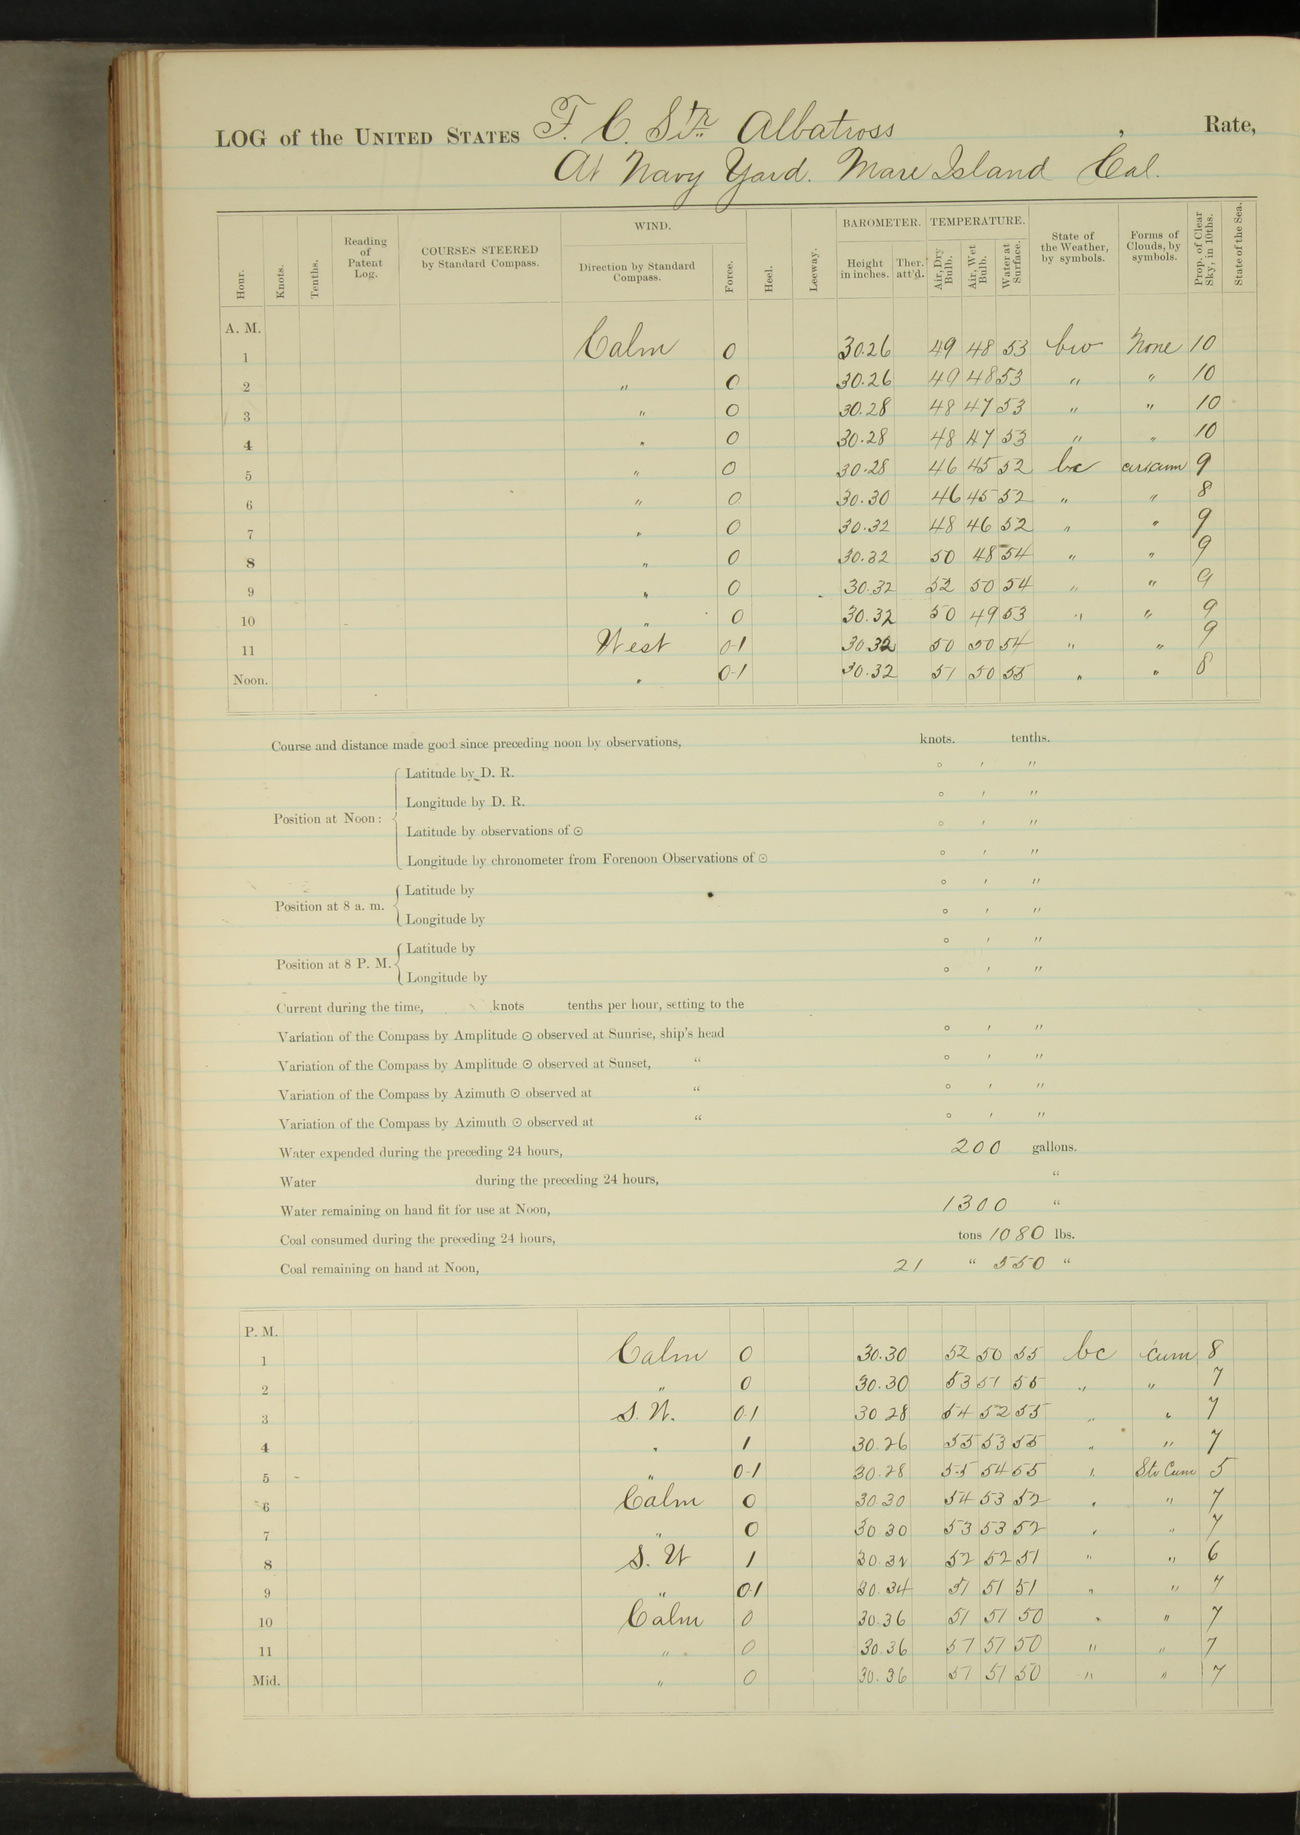 LOG of the UNITED STATES F. C. Str. Albatross , Rate,
At Navy Yard. Mare Island Cal.
Hour. Knots. Tenths. Reading of Patent Log. COURSES STEERED by Standard Compass. WIND. Direction by Standard Compass. Force. Heel. Leeway. BAROMETER. Height in inches. Ther. att'd. TEMPERATURE. Air, Dry Bulb. Air, Wet Bulb. Water at Surface. State of the Weather, by symbols. Forms of Clouds, by symbols. Prop. of Clear Sky, in 10ths. State of the Sea.
A. M.
1 Calm 0 30.26 49 48 53 bw None 10
2 " 0 30.26 49 48 53 " " 10
3 " 0 30.28 48 47 53 " " 10
4 " 0 30.28 48 47 53 " " 10
5 " 0 30.28 46 45 52 bc cir cum 9
6 " 0 30.30 46 45 52 " " 8
7 " 0 30.32 48 46 52 " " 9
8 " 0 30.32 50 48 54 " " 9
9 " 0 30.32 52 50 54 " " 9
10 " 0 30.32 50 49 53 " " 9
11 West 0-1 30.32 50 50 54 " " 9
Noon. " 0-1 30.32 51 50 55 " " 8
Course and distance made good since preceding noon by observations, knots. tenths.
Position at Noon: Latitude by D. R. ° ′ ″
Longitude by D. R. ° ′ ″
Latitude by observations of ☉ ° ′ ″
Longitude by chronometer from Forenoon Observations of ☉ ° ′ ″
Position at 8 a. m. Latitude by ° ′ ″
Longitude by ° ′ ″
Position at 8 P. M. Latitude by ° ′ ″
Longitude by ° ′ ″
Current during the time, knots tenths per hour, setting to the
Variation of the Compass by Amplitude ☉ observed at Sunrise, ship's head ° ′ ″
Variation of the Compass by Amplitude ☉ observed at Sunset, “ ° ′ ″
Variation of the Compass by Azimuth ☉ observed at “ ° ′ ″
Variation of the Compass by Azimuth ☉ observed at “ ° ′ ″
Water expended during the preceding 24 hours, 200 gallons.
Water during the preceding 24 hours, “
Water remaining on hand fit for use at Noon, 1300 “
Coal consumed during the preceding 24 hours, tons 1080 lbs.
Coal remaining on hand at Noon, 21 “ 550 “
P. M.
1 Calm 0 30.30 52 50 55 bc cum 8
2 " 0 30.30 53 51 55 " " 7
3 S. W. 0-1 30 28 54 52 55 " " 7
4 " 1 30.26 55 53 55 " " 7
5 " 0-1 30.28 55 54 55 " Str Cum 5
6 Calm 0 30.30 54 53 52 " " 7
7 " 0 30 30 53 53 52 " " 7
8 S. W 1 30.32 52 52 51 " " 6
9 " 0-1 30.34 51 51 51 " " 7
10 Calm 0 30.36 51 51 50 " " 7
11 " 0 30.36 51 51 50 " " 7
Mid. " 0 30.36 51 51 50 " " 7